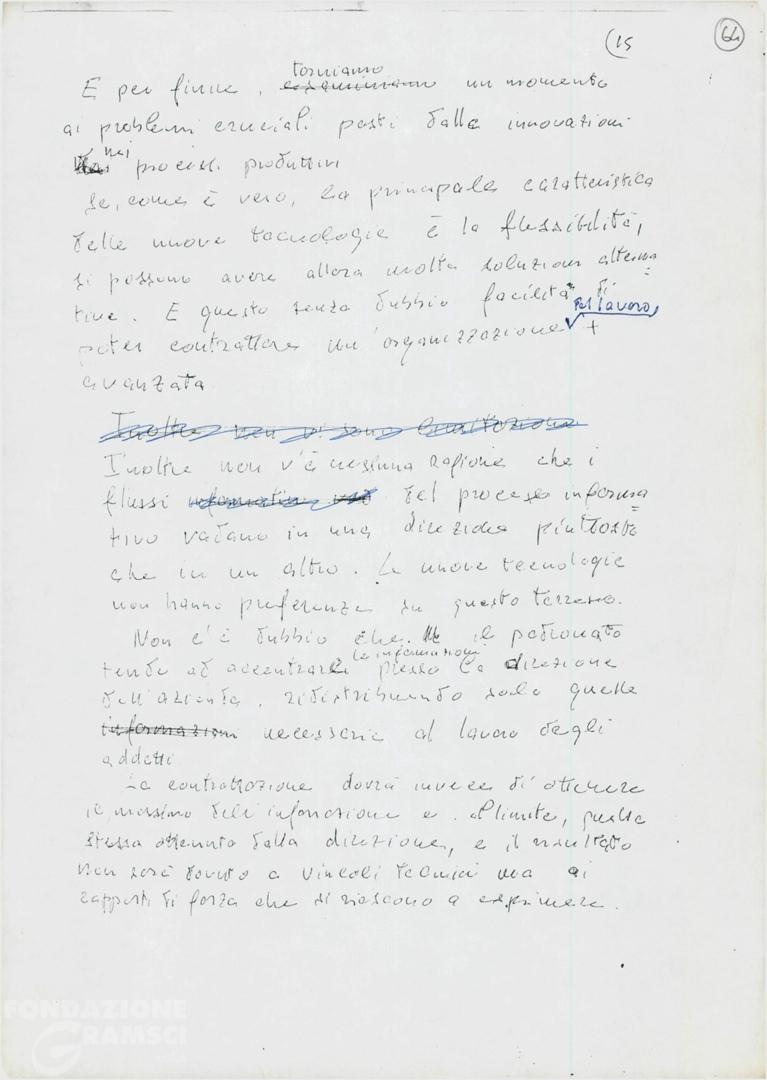 (15
64
E per finire, torniamo ~~esaminiamo~~ un momento
ai problemi cruciali posti dalle innovazioni
nei processi produttivi
Se, come è vero, la principale caratteristica
delle nuove tecnologie è la flessibilità,
si possono avere allora molte soluzioni alterna=
tive. E questo senza dubbio facilita di
poter contrattare un'organizzazione del lavoro +
avanzata.
~~Inoltre non vi sono limitazione~~
Inoltre non v'è nessuna ragione che i
flussi del processo informa=
tivo vadano in una direzione piuttosto
che in un altro. Le nuove tecnologie
non hanno preferenze su questo terreno.
Non c'è dubbio che il padronato
tende ad accentrare le informazioni presso la direzione
dell'azienda, ridistribuendo solo quelle
~~informazioni~~ necessarie al lavoro degli
addetti.
La contrattazione dovrà invece di ottenere
il massimo dell'informazione e, al limite, quella
stessa ottenuta dalla direzione, e il risultato
non sarà dovuto a vincoli tecnici ma ai
rapporti di forza che si riescono a esprimere.
FONDAZIONE
GRAMSCI